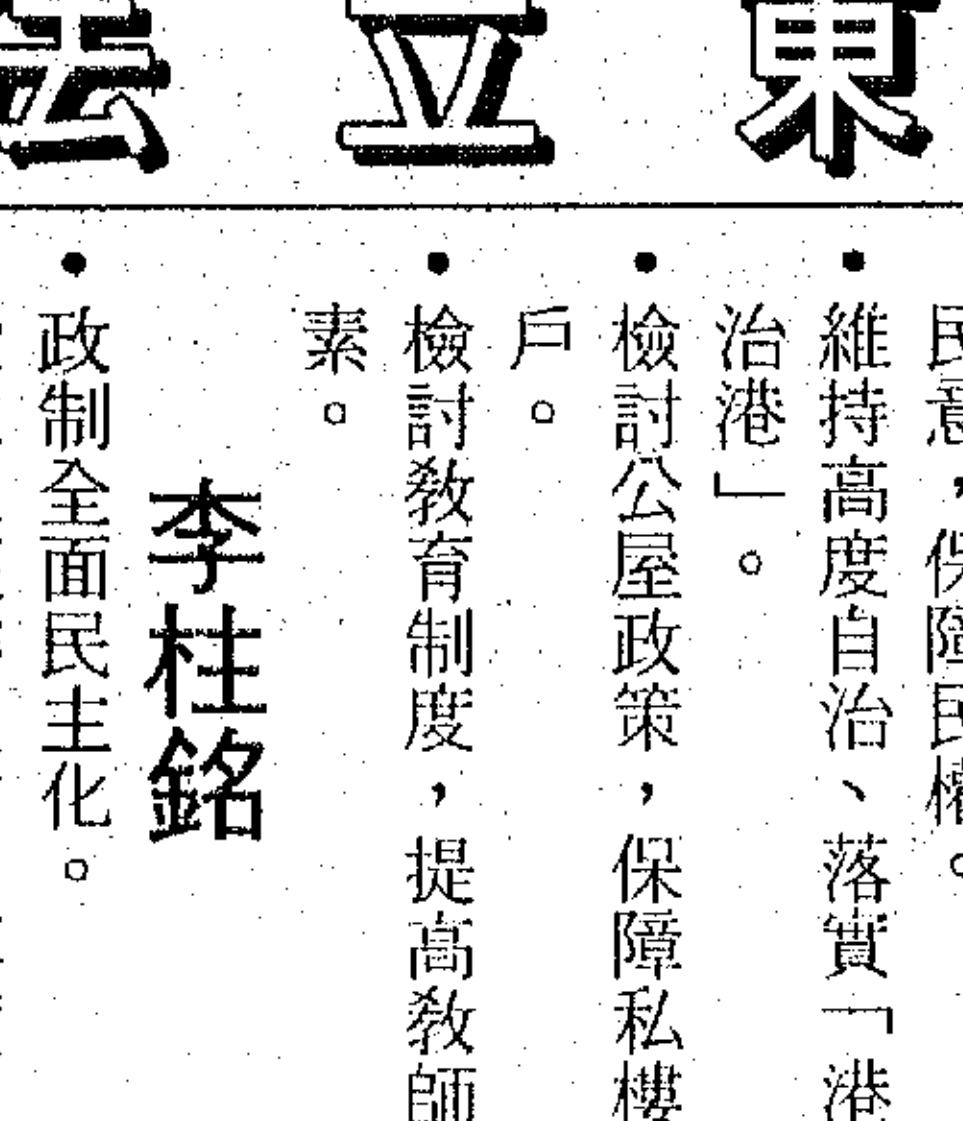 東立法
民意，保障民權。
維持高度自治、落實「港
治港」。
檢討公屋政策，保障私樓
戶。
檢討敎育制度，提高敎師
素。
李柱銘
政制全面民主化。